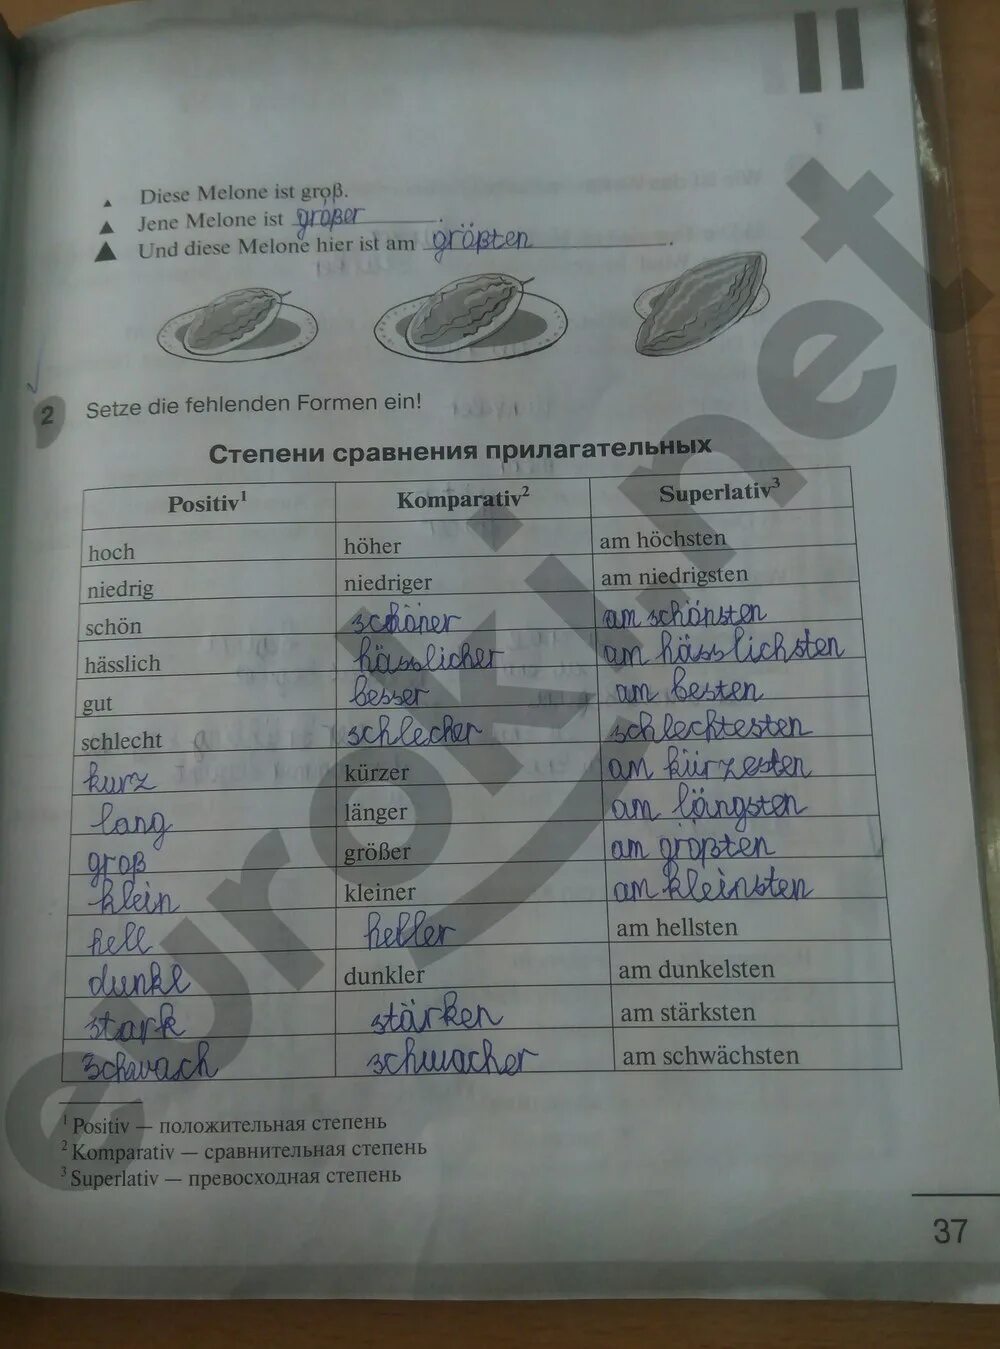 Diese Melone ist groß.
Jene Melone ist größer.
Und diese Melone hier ist am größten.
2 Setze die fehlenden Formen ein!
Степени сравнения прилагательных
Positiv¹ Komparativ² Superlativ³
hoch höher am höchsten
niedrig niedriger am niedrigsten
schön schöner am schönsten
hässlich hässlicher am hässlichsten
gut besser am besten
schlecht schlecher schlechtesten
kurz kürzer am kürzesten
lang länger am längsten
groß größer am größten
klein kleiner am kleinsten
hell heller am hellsten
dunkl dunkler am dunkelsten
stark stärken am stärksten
schwach schwacher am schwächsten
¹ Positiv — положительная степень
² Komparativ — сравнительная степень
³ Superlativ — превосходная степень
37
euroki.net